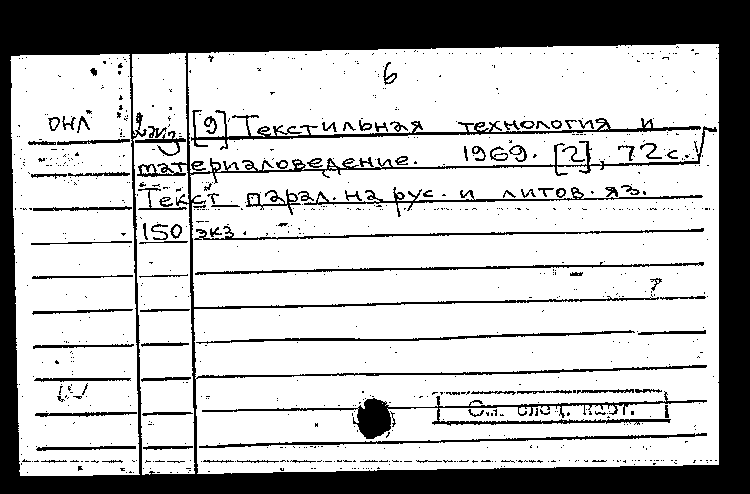 6
ОНЛ 2 экз [9] Текстильная технология и
материаловедение. 1969. [2], 72 с.
Текст парал. на рус. и литов. яз.
150 экз.
См. след. карт.